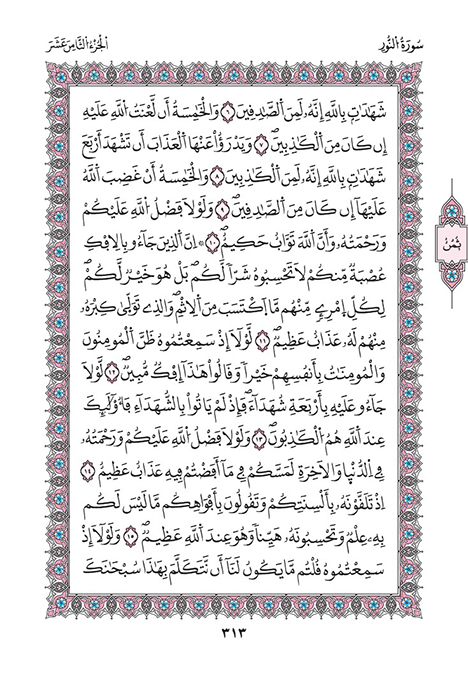 سُورَةُ النُّورِ
الْجُزْءُ الثَّامِنَ عَشَرَ
شَهَٰدَٰتِۢ بِاللَّهِ إِنَّهُۥ لَمِنَ اَلصَّٰدِقِينَۖ ٦ وَالْخَٰمِسَةُ أَن لَّعْنَتُ اُللَّهِ عَلَيْهِ
إِن كَانَ مِنَ اَلْكَٰذِبِينَۖ ٧ وَيَدْرَؤُاْ عَنْهَا اَلْعَذَابَ أَن تَشْهَدَ أَرْبَعَ
شَهَٰدَٰتِۢ بِاللَّهِ إِنَّهُۥ لَمِنَ اَلْكَٰذِبِينَ ٨ وَالْخَٰمِسَةُ أَنْ غَضِبَ اَللَّهُ
عَلَيْهَا إِن كَانَ مِنَ اَلصَّٰدِقِينَۖ ٩ وَلَوْلَا فَضْلُ اُللَّهِ عَلَيْكُمْ
وَرَحْمَتُهُۥ وَأَنَّ اَللَّهَ تَوَّابٌ حَكِيمٌۖ ١٠ ۞ اِنَّ اَلذِينَ جَآءُو بِالِافْكِ
عُصْبَةٌ مِّنكُمْ لَا تَحْسِبُوهُ شَرّاٗ لَّكُمۖ بَلْ هُوَ خَيْرٞ لَّكُمْۖ
لِكُلِّ اِمْرِےٕٖ مِّنْهُم مَّا اَكْتَسَبَ مِنَ اَلِاثْمِۖ وَالذِے تَوَلّ۪يٰ كِبْرَهُۥ
مِنْهُمْ لَهُۥ عَذَابٌ عَظِيمٞۖ ١١ لَّوْلَآ إِذْ سَمِعْتُمُوهُ ظَنَّ اَلْمُومِنُونَ
وَالْمُومِنَٰتُ بِأَنفُسِهِمْ خَيْراٗ وَقَالُواْ هَٰذَآ إِفْكٞ مُّبِينٞۖ ١٢ لَّوْلَا
جَآءُو عَلَيْهِ بِأَرْبَعَةِ شُهَدَآءَۖ فَإِذْ لَمْ يَاتُواْ بِالشُّهَدَآءِ فَأُوْلَٰٓئِكَ
عِندَ اَللَّهِ هُمُ اُلْكَٰذِبُونَۖ ١٣ وَلَوْلَا فَضْلُ اُللَّهِ عَلَيْكُمْ وَرَحْمَتُهُۥ
فِے اِلدُّنْي۪ا وَالَاخِرَةِ لَمَسَّكُمْ فِے مَآ أَفَضْتُمْ فِيهِ عَذَابٌ عَظِيمٌ ١٤
اِذْ تَلَقَّوْنَهُۥ بِأَلْسِنَتِكُمْ وَتَقُولُونَ بِأَفْوَاهِكُم مَّا لَيْسَ لَكُم
بِهِۦ عِلْمٞ وَتَحْسِبُونَهُۥ هَيِّناٗ وَهُوَ عِندَ اَللَّهِ عَظِيمٞۖ ١٥ وَلَوْلَآ إِذْ
سَمِعْتُمُوهُ قُلْتُم مَّا يَكُونُ لَنَآ أَن نَّتَكَلَّمَ بِهَٰذَا سُبْحَٰنَكَ
ثُمُنُ
٣١٣